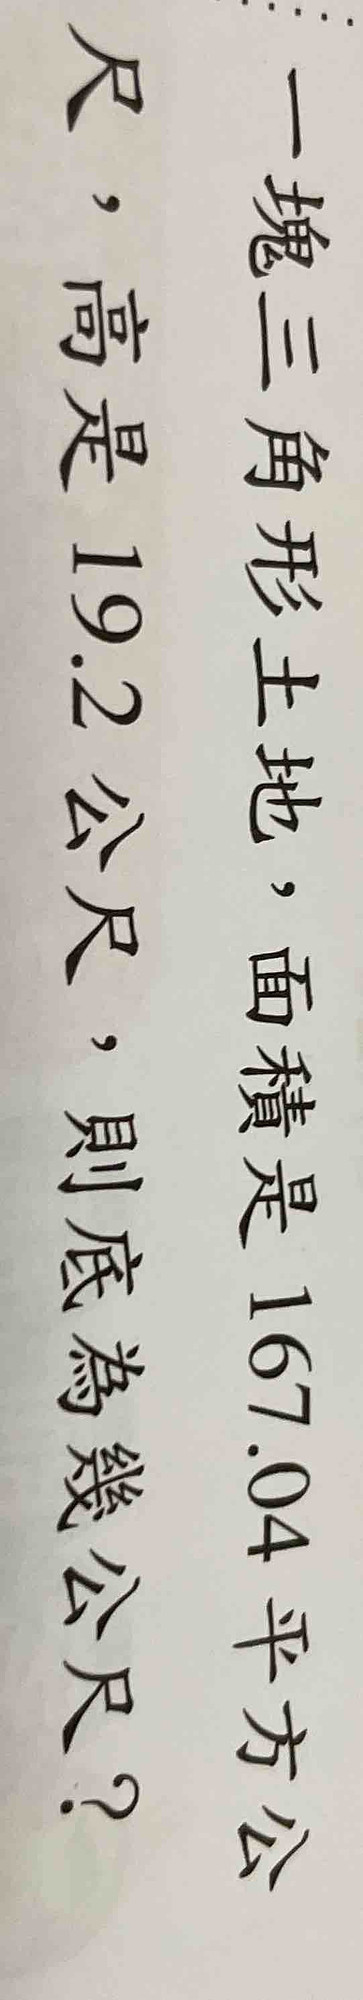 一塊三角形土地，面積是 167.04 平方公
尺，高是 19.2 公尺，則底為幾公尺？